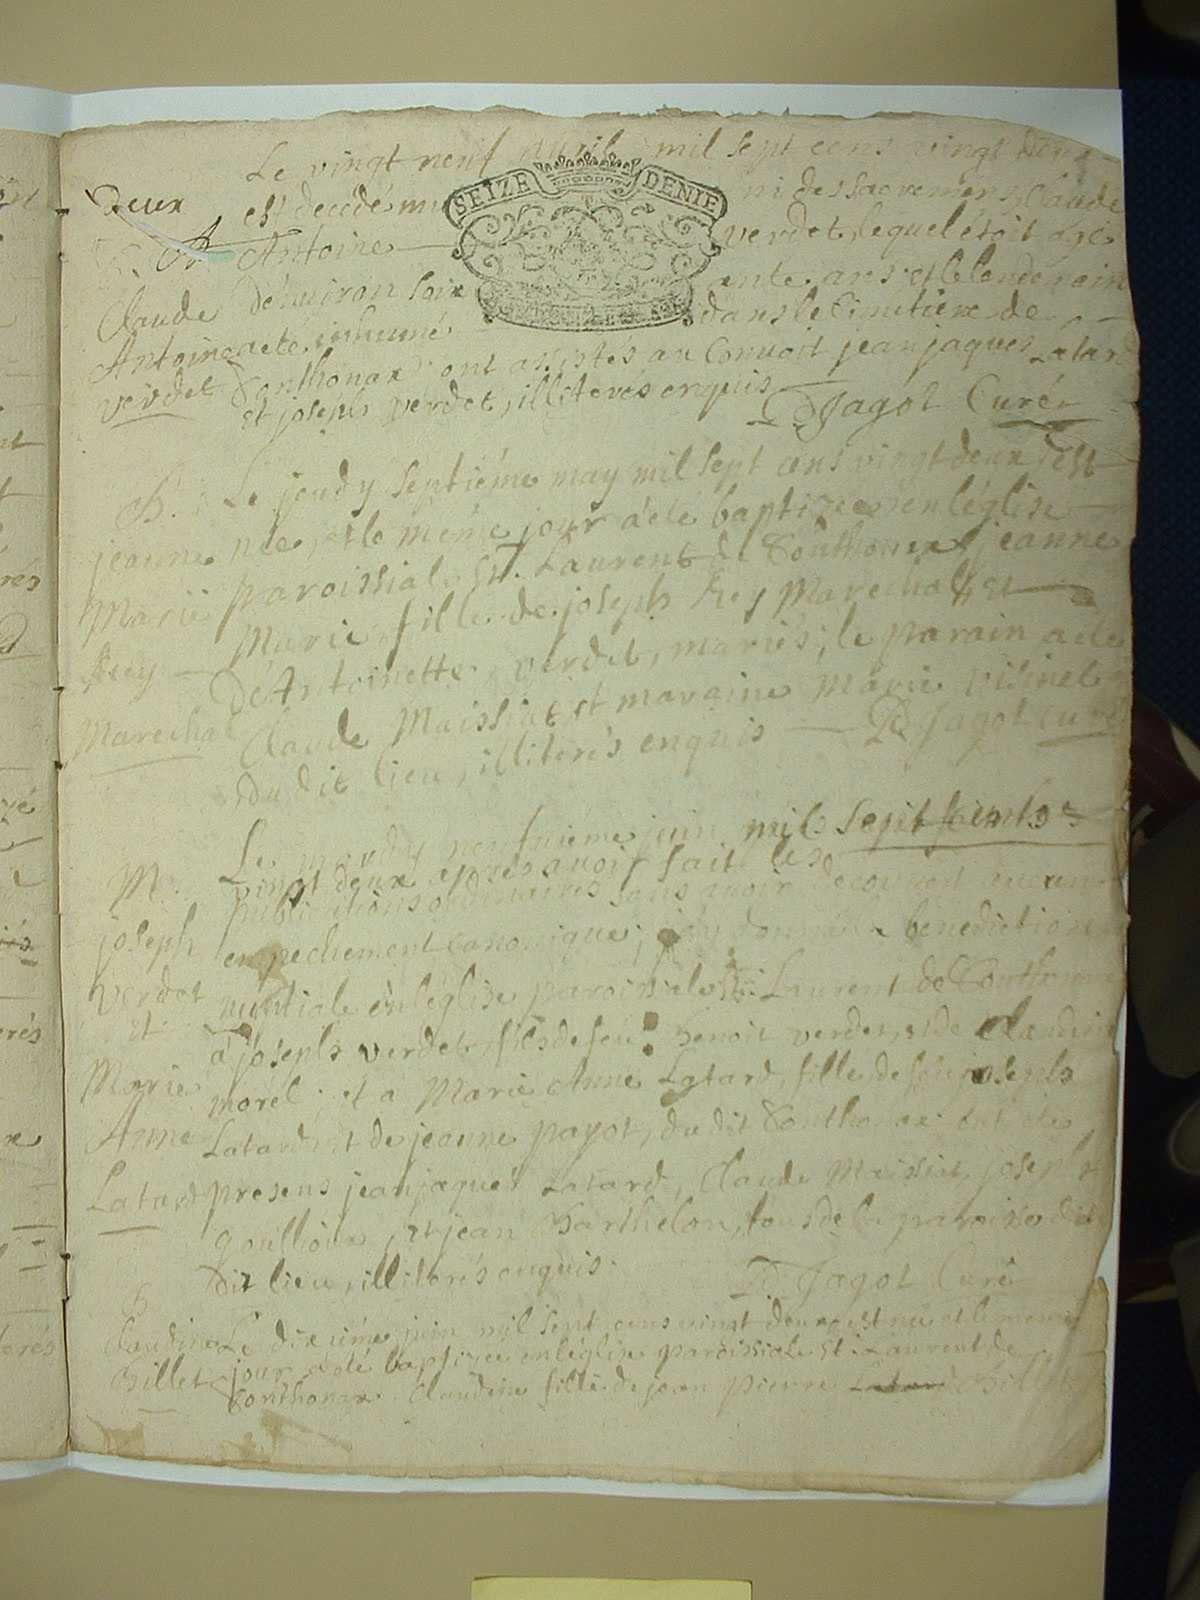 Le vingt neuf avril mil sept cens vingt deux
deux
est decedé muni des sacremens Claude
SEIZE DENIE
Antoine verdet, lequel etoit agé
Claude
d'environ soixante ans et le lendemain
Antoine
a eté inhumé dans le Cimetiere de
verdet
Conthonax ont assistés au Convoit jean jaques Latard
et joseph verdet, illiterés enquis
Jagot Curé
B.
Le jeudy septiéme may mil sept cens vingt deux est
jeanne
née, et le méme jour a eté baptizée en l'église
Marie
paroissiale St. Laurent de Conthonax jeanne
Rey
Marie fille de joseph Rey Marechal et
Marechal
d'Antoinette verdet, mariés; le parain a eté
Claude Maissiat et maraine Marie visinel
du dit lieu, illiterés enquis Jagot curé
M.
Le mardy neufuiéme juin mil sept cents
vingt deux apres avoir fait les
publications ordinaires sans avoir decouvert aucun
joseph
empechement canonique; j'ay donné la benediction
verdet
nuptiale en l'église paroissiale St. Laurent de Conthonax
et
a joseph verdet, fils de feu Benoit verdet, et de Claudine
Marie
morel; et a Marie Anne Latard, fille de feu joseph
Anne
Latard, et de jeanne payot, du dit Conthonax ont eté
Latard
presens jean jaques Latard, Claude Maissiat, joseph
gouilloux, et jean Barthelon, tous de la paroisse du
dit lieu, illiterés enquis. Jagot Curé
B
Claudine
Le dixiéme juin mil sept cens vingt deux est née et le meme
Billet
jour a eté baptizee en léglise paroissiale St. Laurent de
Conthonax Claudine fille de jean pierre Latard Billet